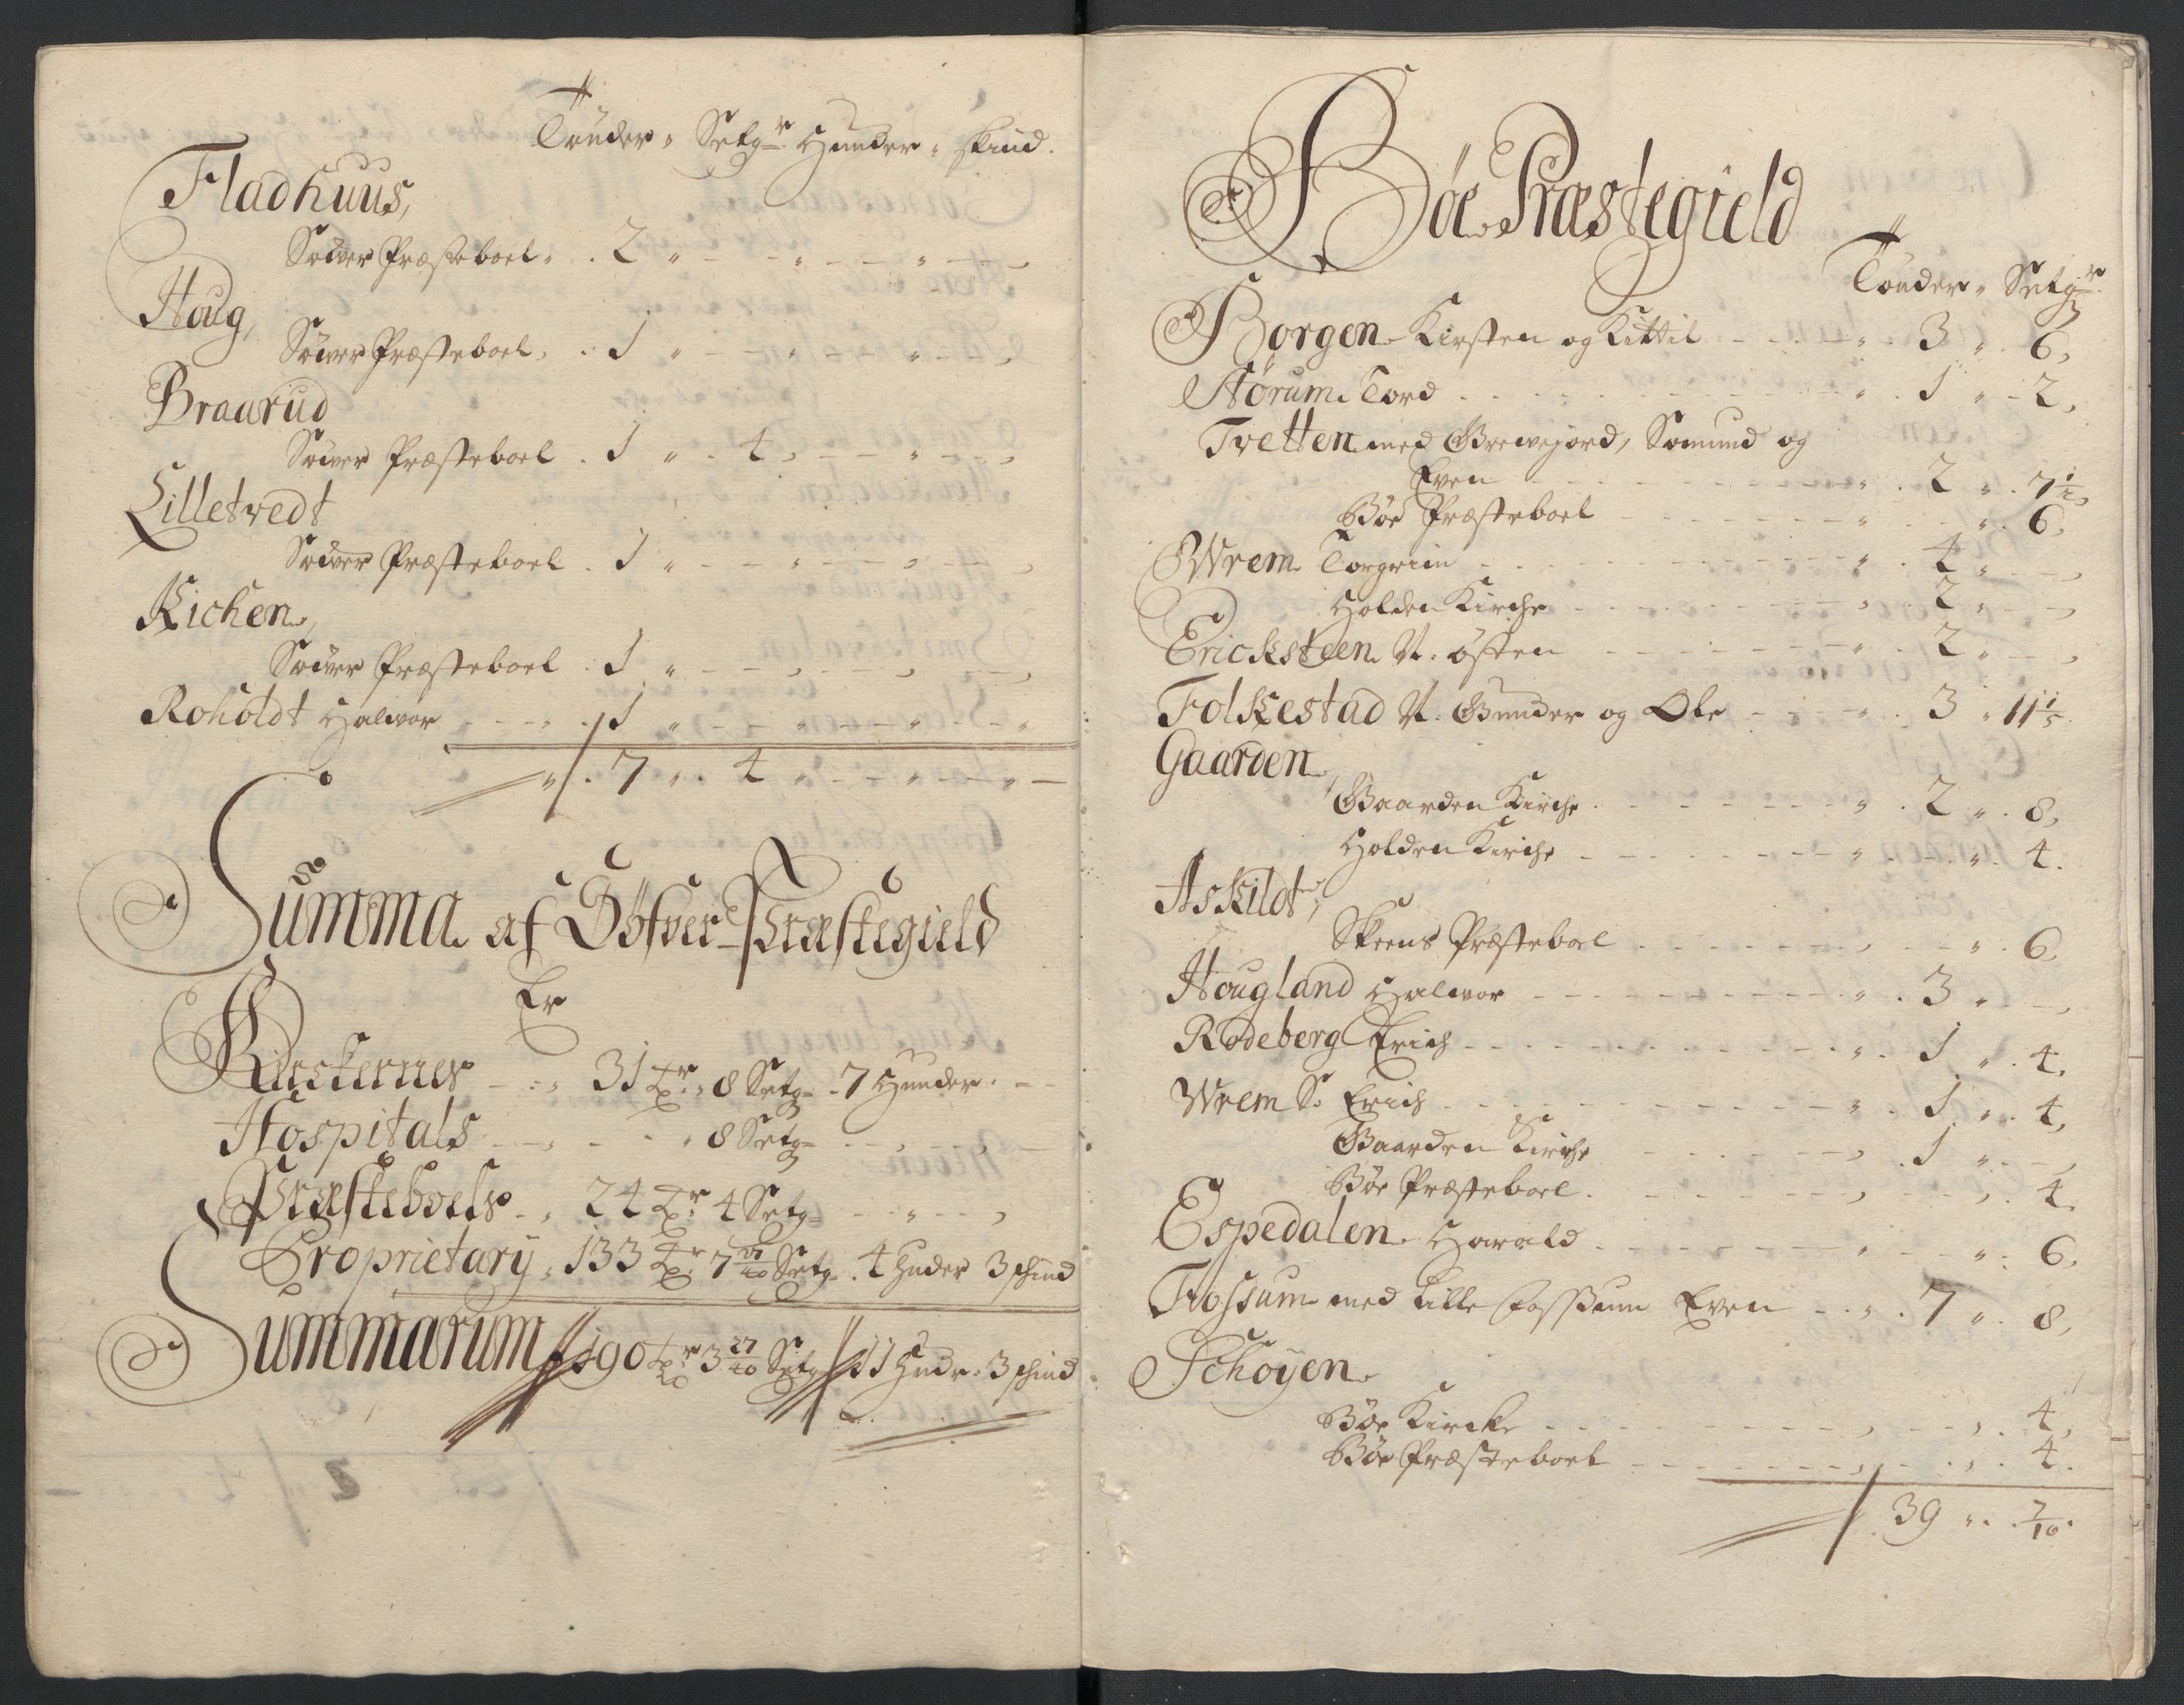 Tønder " Setgr Hunder " skind.
Fladhuus,
Søver Præsteboel " . 2 "
Houg,
Søver Præsteboel, . 1 "
Braarud
Søver Præsteboel . 1 " . 4,
Lilletvedt
Søver Præsteboel . 1 "
Kichen,
Søver Præsteboel . 1 "
Roholdt Halvor . 1 "
" . 7 " . 4 "
Summa af Söfver-Præstegield
Er
Kirckernes 31 Tr " 8 Setg - 7 Hunder.
Hospitals 8 Setg
Præsteboels 24 Tr 4 Setg
Proprietary, 133 Tr 7 27/40 Setg . 4 Huder 3 skind
Summarum 190 Tr 3 27/40 Setg 11 Hudr. 3 skind
Bøe Præstegield
Tønder " Setgr
Borgen Kirsten og Kittil 3 " 6,
Nørum Tord 1 " 2,
Tvetten med Grevejord, Somund og
Even 2 " 7 1/2
Bøe Præsteboel " 6,
Wrem Torgrim 4 "
Holden Kirche 2 "
Ericksteen N. østen 2 "
Folkestad N. Gunder og Ole 3 " 11 1/5
Gaarden,
Gaarden Kirche 2 " 8,
Holden Kirche " 4.
Askildt,
Skeens Præsteboel " 6,
Hougland Halvor 3 "
Rodeberg Erich 1 " 4,
Wrem S. Erich 1 " 4,
Gaarden Kirche 1 "
Bøe Præsteboel 4.
Espedalen Harald " 6,
Fossum med Lille Fossum Even 7 " 8,
Schoyen
Bøe Kircke 4,
Bøe Præsteboel 4.
39 " 7/10.